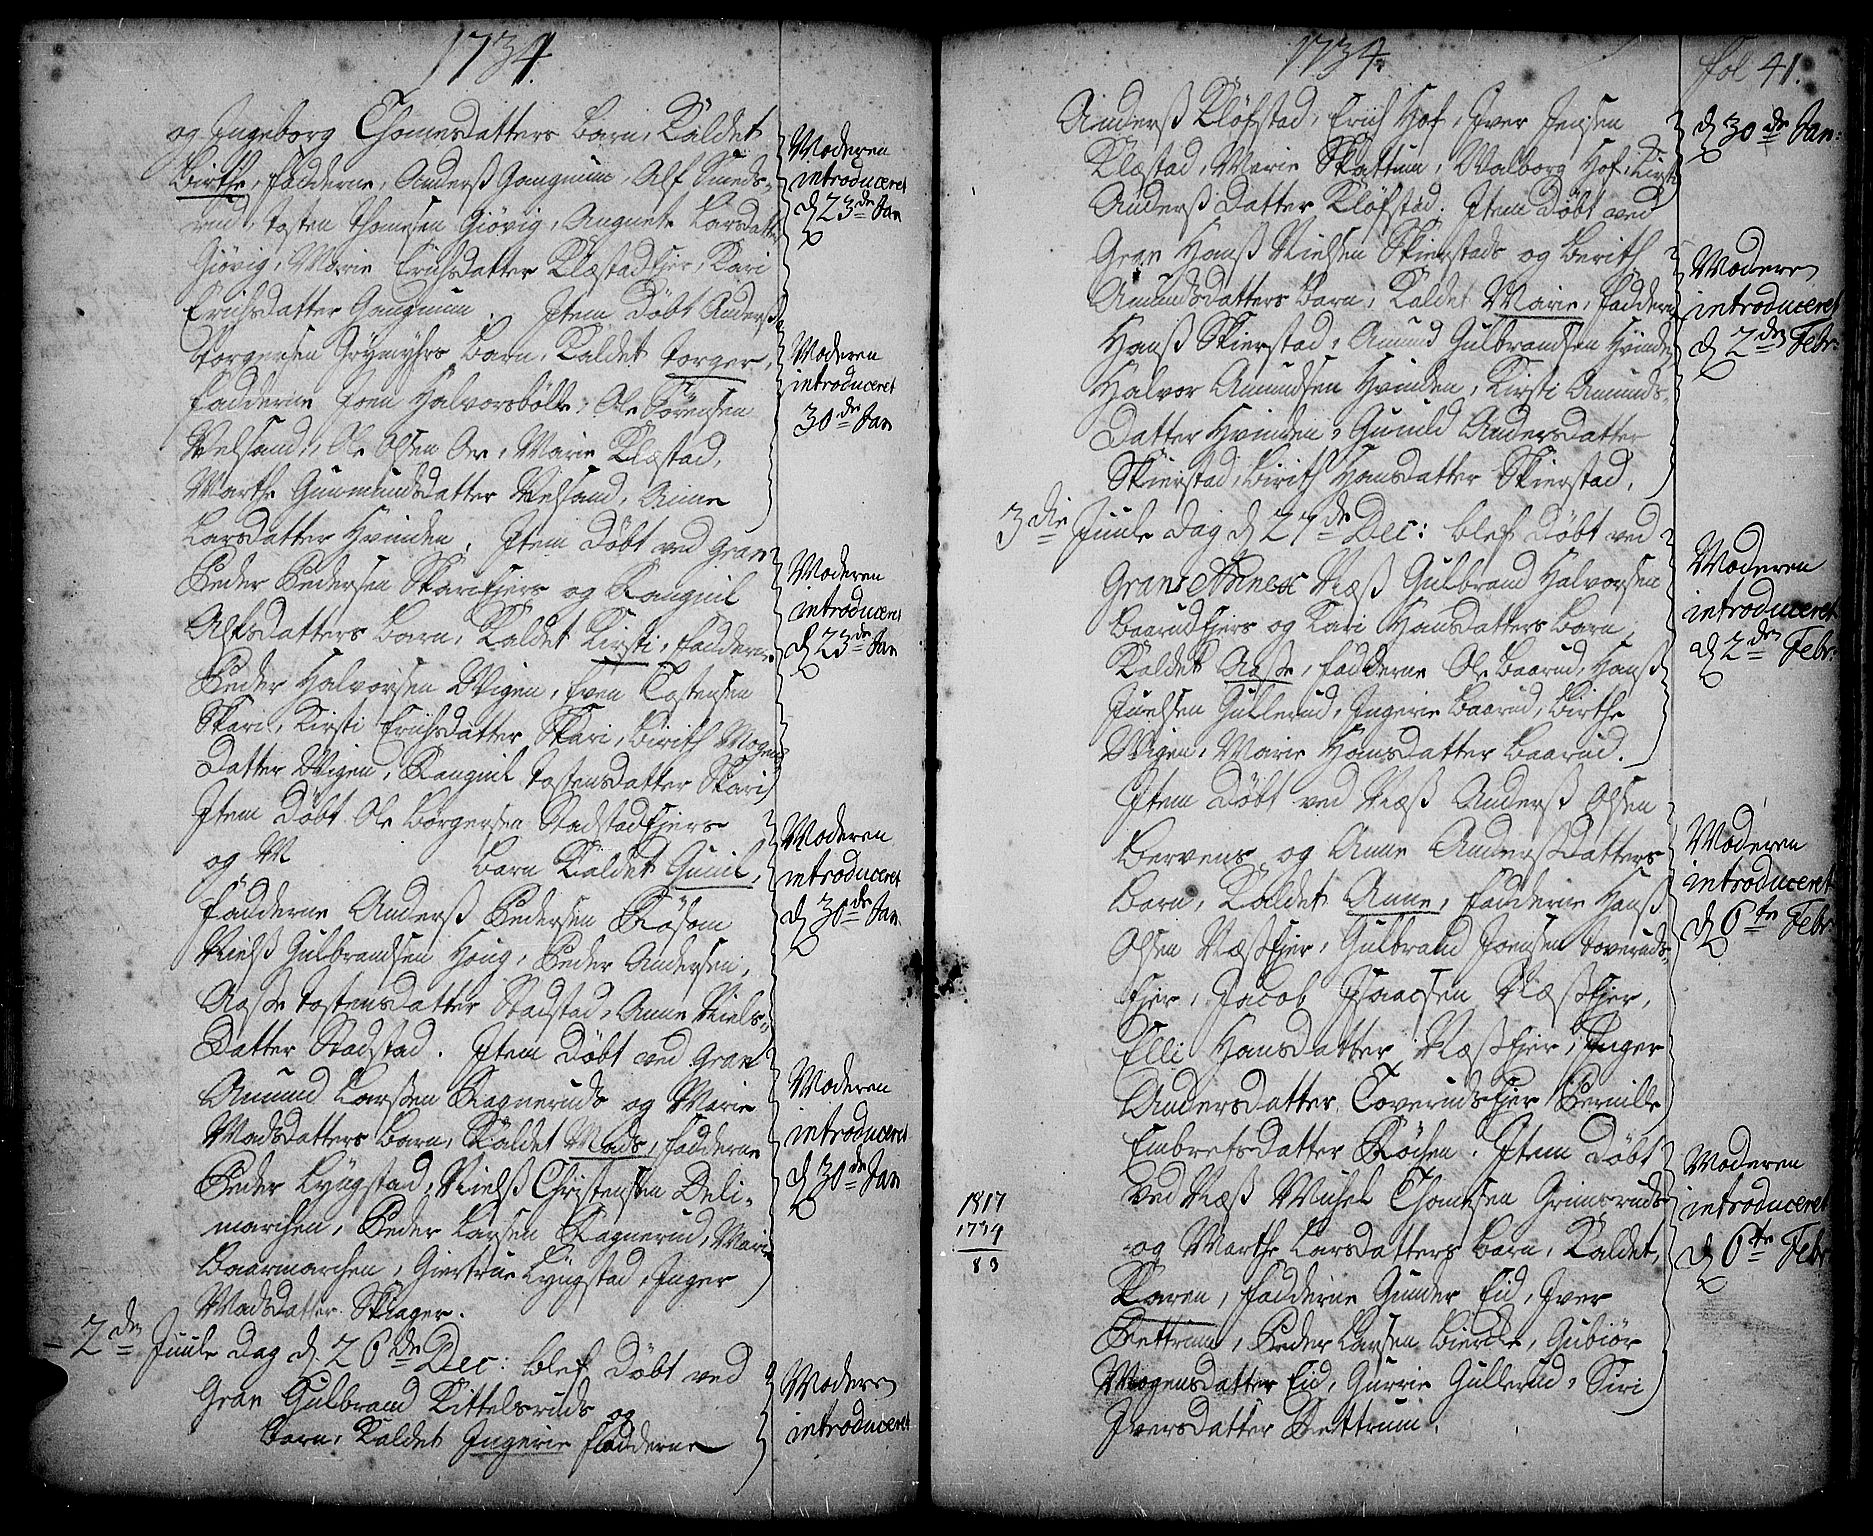 1734.
og Ingeborg Thomesdatters barn, Kaldet
Birthe, fadderne, Anderß Gangnum, Alf Smeds-
rud, Tosten Thomesen Giövig, Angnete Larsdatter
Giövig, Marie Erichsdatter Klæstadejer, Kari
Erichsdatter Gangnum. Item Döbt Anderß
Torgersen barn, Kaldet Torger,
fadderne Joen Halvorsbölle, Ole Sörensen
Velsand, Ole Olsen Öve, Marie Klæstad,
Marthe Gunmundsdatter Velsand, Anne
Larsdatter Hvinden. Item Döbt ved Gran
Peder Pedersen Skariejers og Rangnil
Alfsdatters barn, Kaldet Kirsti, fadderne
Peder Halvorsen Wigen, Even Tostensen
Skari, Kirsti Erichsdatter Skari, Birith Mogens
Datter Wigen, Rangnil Tostensdatter Skari
Item Döbt Ole Borgersen Stadstadejers
og M barn Kaldet Gunil,
fadderne Anderß Pedersen Råsom
Nielß Gulbrandsen Houg, Peder Andersen,
Aaße Tostensdatter Stadstad, Anne Niels-
Datter Stadstad. Item Döbt ved Gran
Amund Larsen Ragneruds og Marie
Madsdatters barn, Kaldet Mads, fadderne
Peder Lyngstad, Nielß Christensen Deli-
marchen, Peder Larsen Ragnerud, Marie
Baarmarchen, Giertrue Lyngstad, Inger
Madsdatter Skiager.
2den Juule Dag d. 26de Dec: blef Döbt ved
Gran Gulbrand Kittelsruds og
barn, Kaldet Ingerie fadderne
Moderen
introduceret
d 23de Jan
Moderen
introduceret
30de Jan
Moderen
introduceret
d 23de Jan
Moderen
introduceret
d 30de Jan
Moderen
introduceret
d 30de Jan
Moderen
introduceret
1734.
fol 41.
Anderß Klöfstad, Erich Hof, Iver Jensen
Klæstad, Marie Skattum, Walborg Hof, Kirsti
Anderß Datter Klöfstad. Item Döbt ved
Gran Hanß Nielsen Skierstads og Berith
Amundsdatters barn, Kaldet Marie, faddern
Hanß Skierstad, Amund Gulbrandsen Hvinden
Halvor Amundsen Hvinden, Kirsti Amunds-
Datter Hvinden, Gunild Andersdatter
Skierstad, Birith Hansdatter Skierstad.
3die Juule Dag d 27de Dec: blef Döbt ved
Grans Annex Næß Gulbrand Halvorsen
Baarudejers og Kari Hansdatters barn,
Kaldet Aaße, fadderne Ole Baarud, Hanß
Juelsen Gullerud, Ingerie Baarud, Birthe
Wigen, Marie Hansdatter Baarud.
Item Döbt ved Næß Anderß Olsen
Bervens og Anne Anderßdatters
barn, Kaldet Anne, fadderne Hanß
Olsen Næßejer, Gulbrand Joensen Toveruds-
ejer, Jacob Isaacsen Næßejer,
Elli Hansdatter Næßejer, Inger
Andersdatter Toverudsejer Pernille
Embretsdatter Röchen. Item Döbt
ved Næß Michel Thomesen Grimsruds
og Marthe Larsdatters barn, Kaldet,
Karen, fadderne Gunder Eid, Iver
Rettrum, Peder Larsen Bierche, Gubiör
Mogensdatter Eid, Gurrie Gullerud, Siri
Iversdatter Rettrum.
1817
1734
83
d 30de Jan:
Moderen
introduceret
d 2den Febr:
Moderen
introduceret
d 2den Febr:
Moderen
introduceret
d 6te Febr:
Moderen
introduceret
d 6te Febr